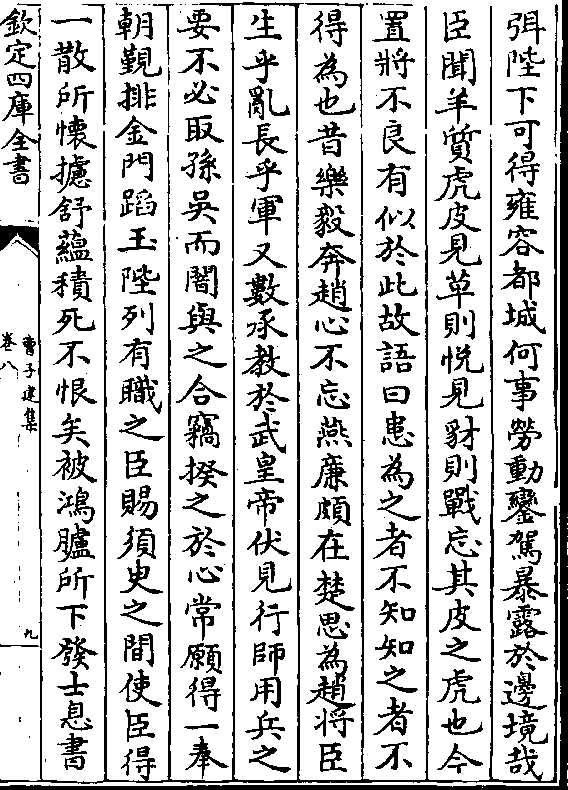 弭陛下可得雍容都城何事勞動鑾駕暴露於邊境哉
臣聞羊質虎皮見草則恱見豺則戰忘其皮之虎也今
置將不良有似於此故語曰患為之者不知知之者不
得為也昔樂毅奔趙心不忘燕廉頗在楚思為趙将臣
生乎亂長乎軍又數承教於武皇帝伏見行師用兵之
要不必取孫吳而闇與之合竊揆之於心常願得一奉
朝覲排金門蹈玉陛列有職之臣賜須臾之間使臣得
一散所懷攄舒蘊積死不恨矣被鴻臚所下發士息書
欽定四庫全書
曹子建集
卷八
九